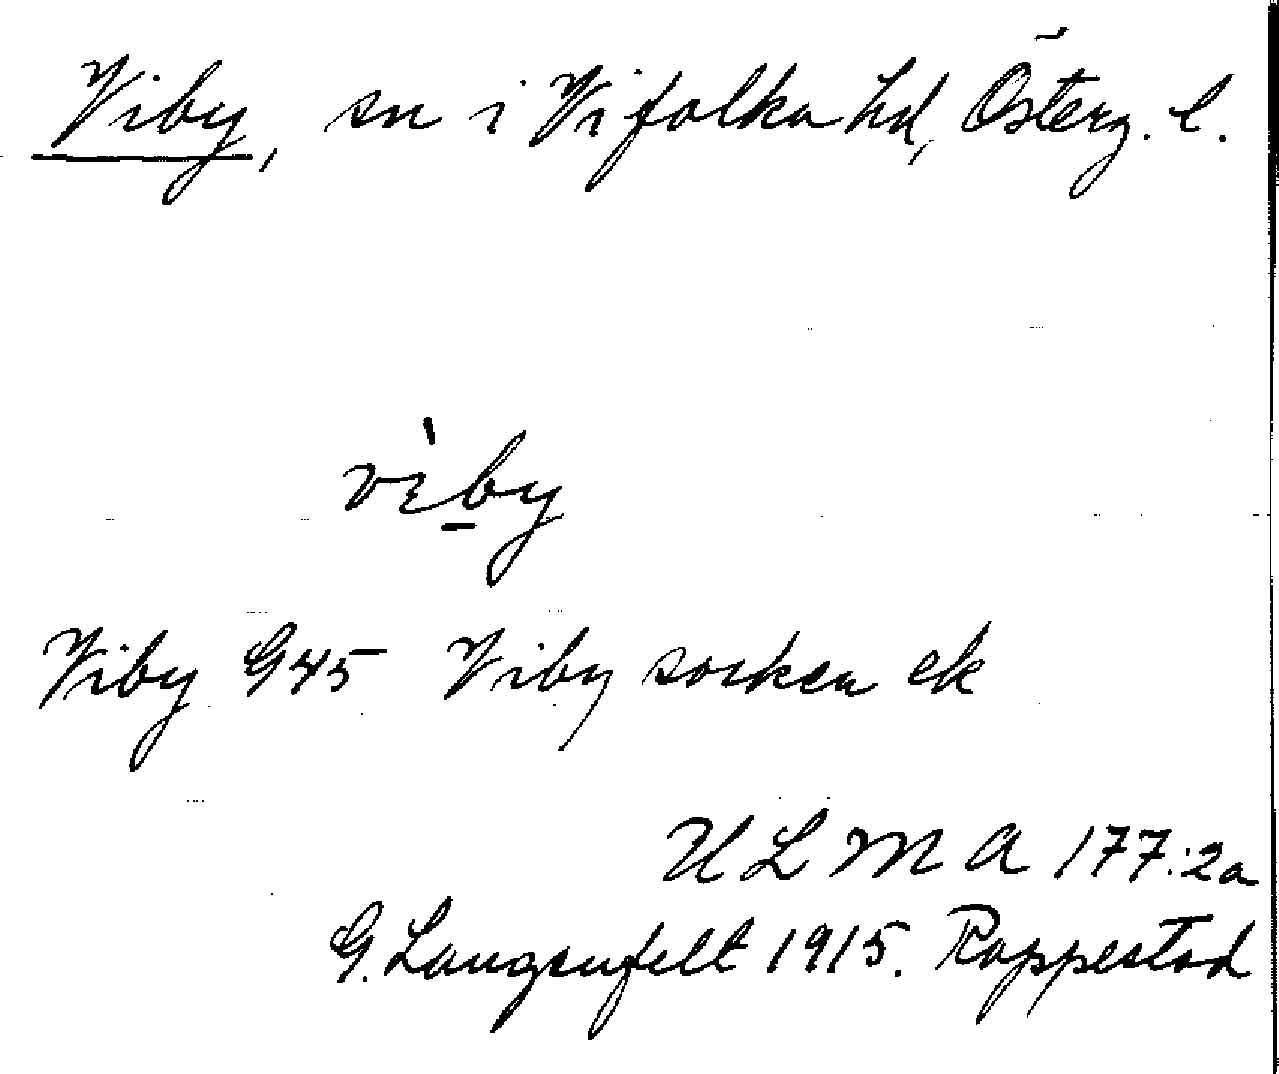 Viby, sn i Vifolka hd, Österg. l.
vìby
Viby G45 Viby socken ek
ULMA 177:2a
G. Langenfelt 1915. Rappestad